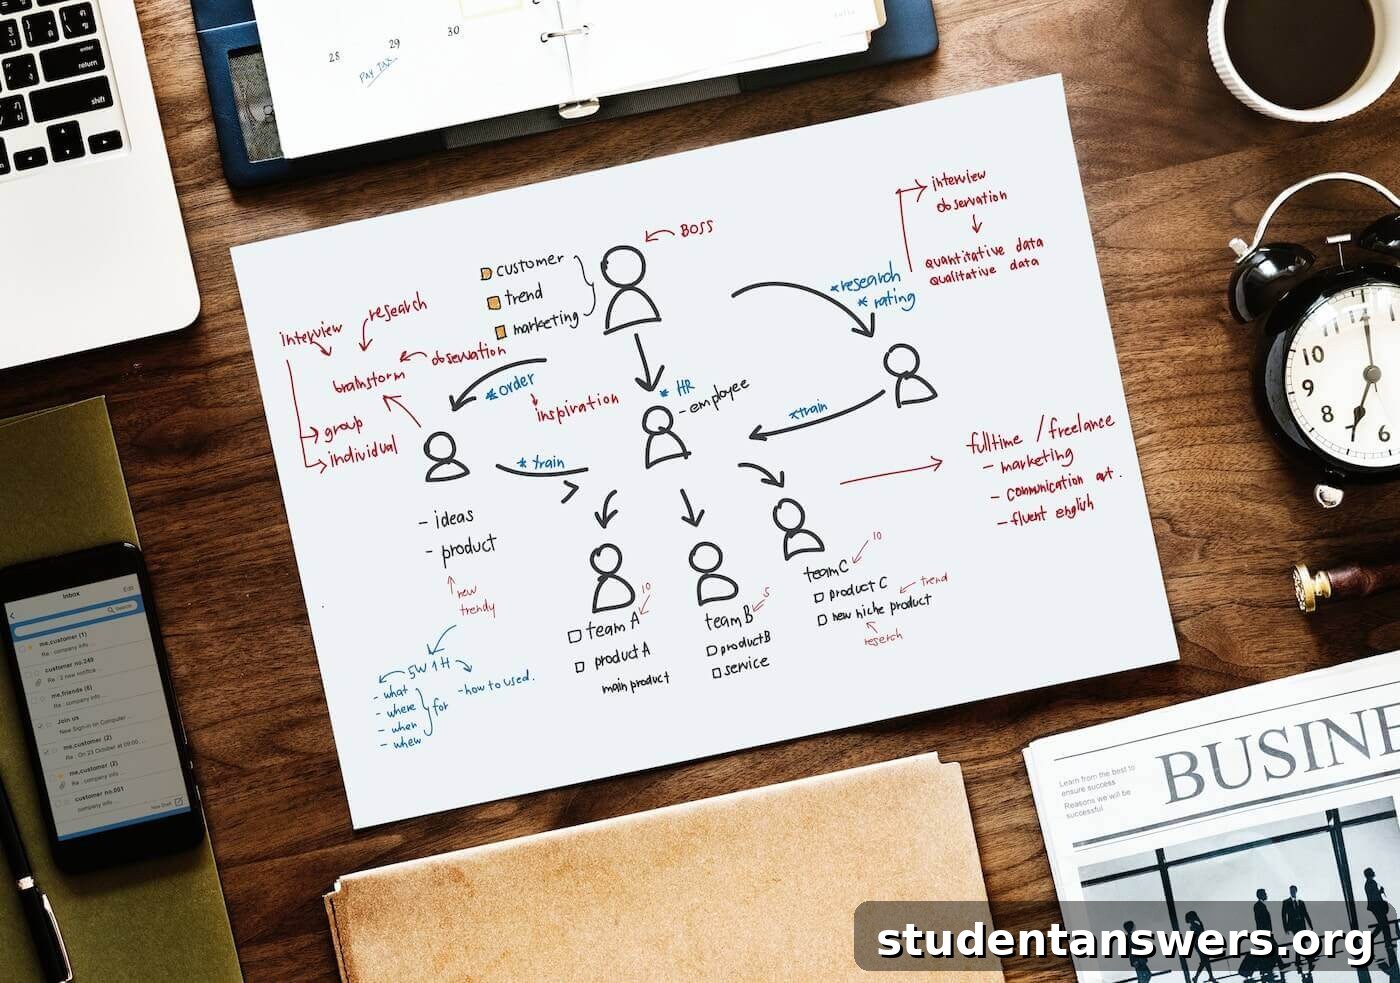 enter
return
shift
28
29
30
PAY TAX
BOSS
customer
trend
marketing
interview
observation
quantitative data
qualitative data
*research
* rating
interview
research
observation
brainstorm
group
individual
*order
inspiration
* HR
- employee
*train
* train
- ideas
- product
new
trendy
5W1H
- what
- where
- when
- whew
for
- how to used.
fulltime / freelance
- marketing
- communication art.
- fluent english
team A
10
product A
main product
team B
5
product B
service
team C
10
product C
trend
new niche product
reserch
Inbox
Edit
Search
me,customer (1)
Re : company info ...
customer no.249
Re : 2 new notifica ...
me,friends (6)
Re : company info ...
Join us
New Sign-in on Computer ...
me,customer (2)
Re : On 23 October at 09:00 ...
me,customer (2)
Re : company info ...
customer no.001
company info ...
New Draft
11
12
1
10
9
8
7
6
5
Learn from the best to
ensure success
Reasons we will be
successful
BUSINE
studentanswers.org